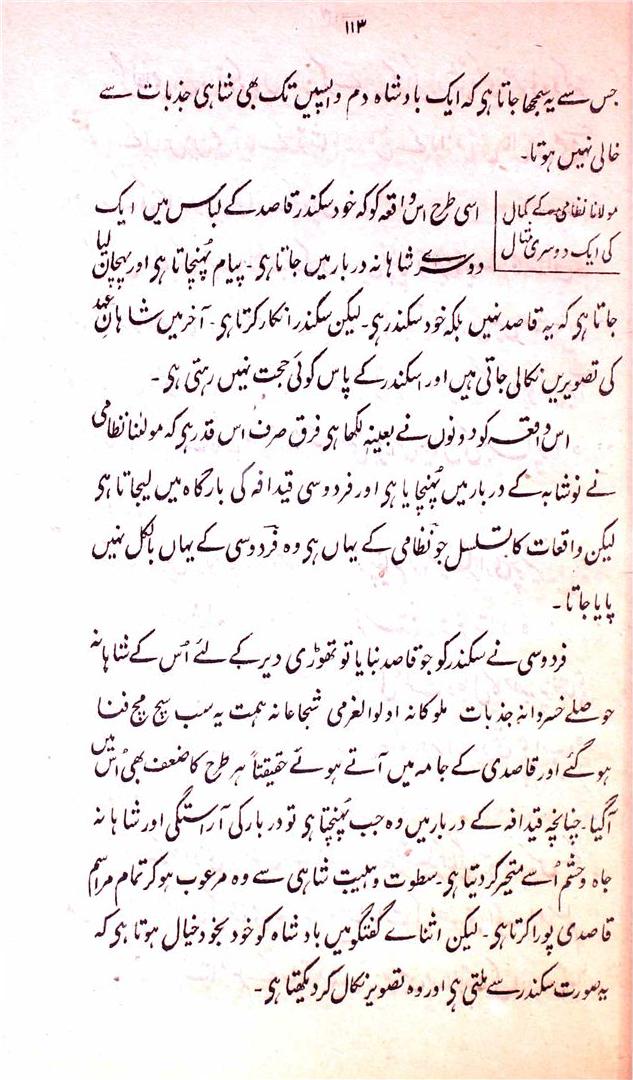 ۱۱۳
جس سے یہ سمجھا جاتا ہی کہ ایک بادشاہ دم واپسیں تک بھی شاہی جذبات سے
خالی نہیں ہوتا۔
مولانا نظامی کے کمال
کی ایک دوسری مثال
اسی طرح اس واقعہ کو کہ خود سکندر قاصد کے لباس میں ایک
دوسرے شاہانہ دربار میں جاتا ہی۔ پیام پہنچاتا ہی اور پہچان لیا
جاتا ہی کہ یہ قاصد نہیں بلکہ خود سکندر ہی۔ لیکن سکندر انکار کرتا ہی۔ آخر میں شاہان عہد
کی تصویریں نکالی جاتی ہیں اور اسکندر کے پاس کوئی حجت نہیں رہتی ہی۔
اس واقعہ کو دونوں نے بعینہ لکھا ہی فرق صرف اس قدر ہی کہ مولٰنا نظامی
نے نوشابہ کے دربار میں پُہنچایا ہی اور فردوسی قیدافہ کی بارگاہ میں لیجاتا ہی
لیکن واقعات کا تسلسل جو نظامی کے یہاں ہی وہ فردوسی کے یہاں بالکل نہیں
پایا جاتا۔
فردوسی نے سکندر کو جو قاصد بنایا تو تھوڑی دیر کے لئے اُس کے شاہانہ
حوصلے خسروانہ جذبات ملوکانہ اولوالعزمی شجاعانہ ہمت یہ سب سچ مچ فنا
ہوگئے اور قاصدی کے جامہ میں آتے ہوئے حقیقتاً ہر طرح کا ضعف بھی اُس میں
آگیا۔ چنانچہ قیدافہ کے دربار میں وہ جب پُہنچتا ہی تو دربار کی آراستگی اور شاہانہ
جاہ وحشم اُسے متحیر کر دیتا ہی۔ سطوت وہیبت شاہی سے وہ مرعوب ہوکر تمام مراسم
قاصدی پورا کرتا ہی۔ لیکن اثنائے گفتگو میں بادشاہ کو خود بخود خیال ہوتا ہی کہ
یہ صورت سکندر سے ملتی ہی اور وہ تصویر نکال کر دیکھتا ہی۔